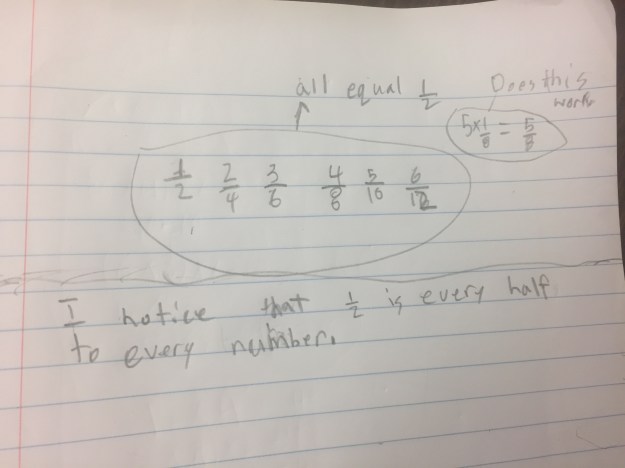 all equal 1/2
Does this
work
5x1/8 = 5/8
1/2 2/4 3/6 4/8 5/10 6/12
I notice that 1/2 is every half
to every number.